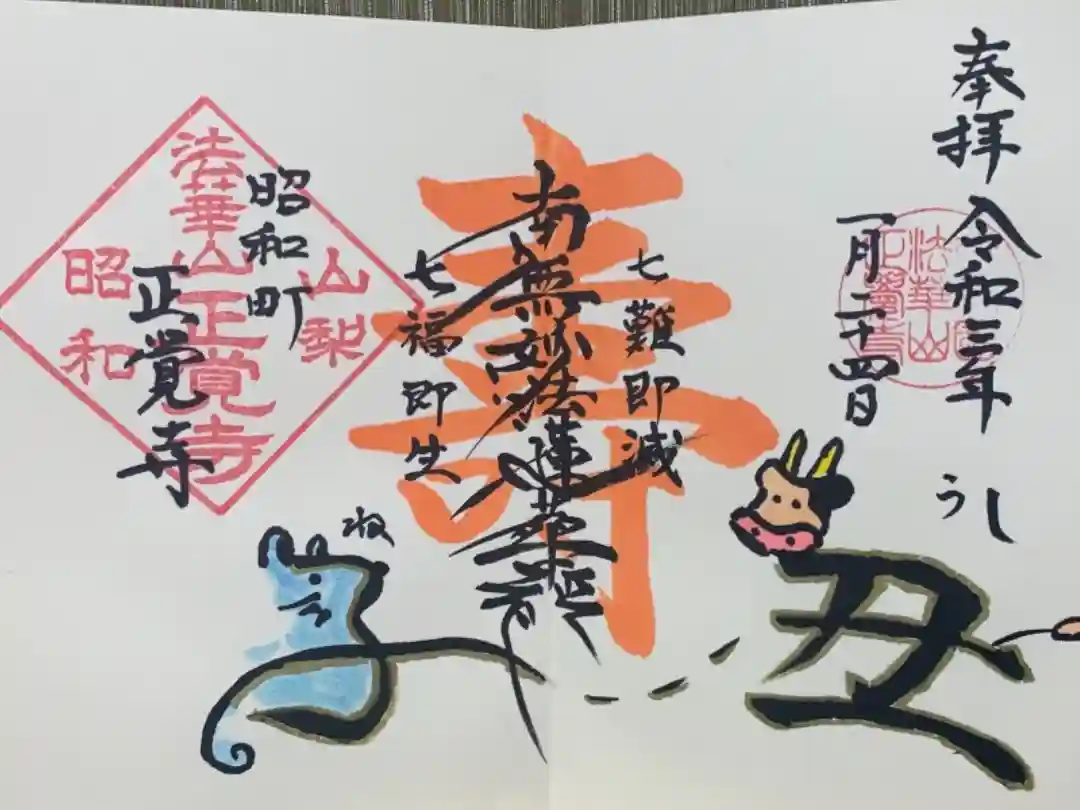 奉拝
令和三年
一月二十四日
うし
丑
法華山
正覺寺
寿
七難即滅
南無妙法蓮華経
七福即生
昭和町
正覚寺
法華山正覚寺
山梨
昭和